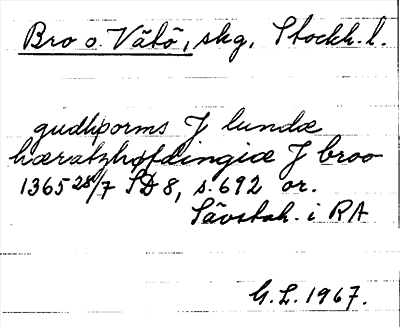 Bro o. Vätö, skg, Stockh. l.
gudhþorms J lundæ
hæratzhøfdingiæ J broo
1365 28/7 SD 8, s. 692 or.
Sävstah. i RA
G.L. 1967.